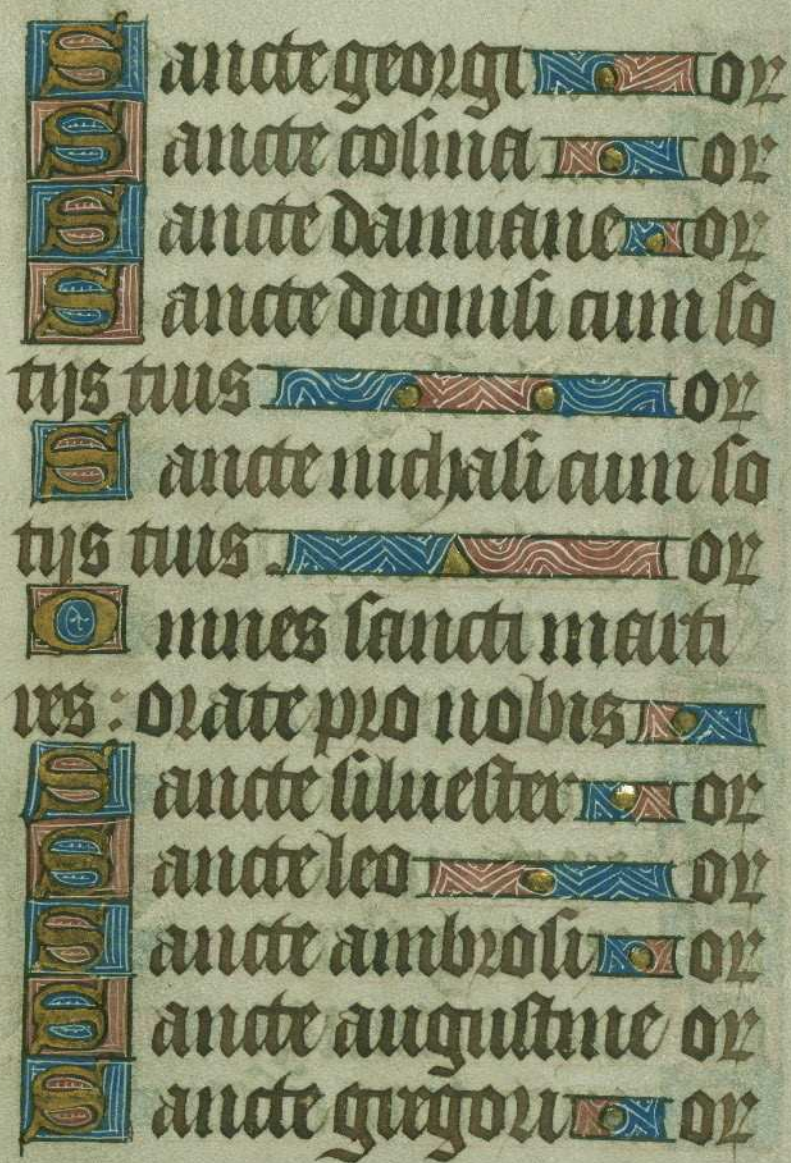 Sancte georgi or
Sancte cosma or
Sancte damiane or
Sancte dionisi cum so
tijs tuis or
Sancte nichasi cum so
tijs tuis or
Omnes sancti marti
res : orate pro nobis
Sancte siluester or
Sancte leo or
Sancte ambrosi or
Sancte augustine or
Sancte gregori or